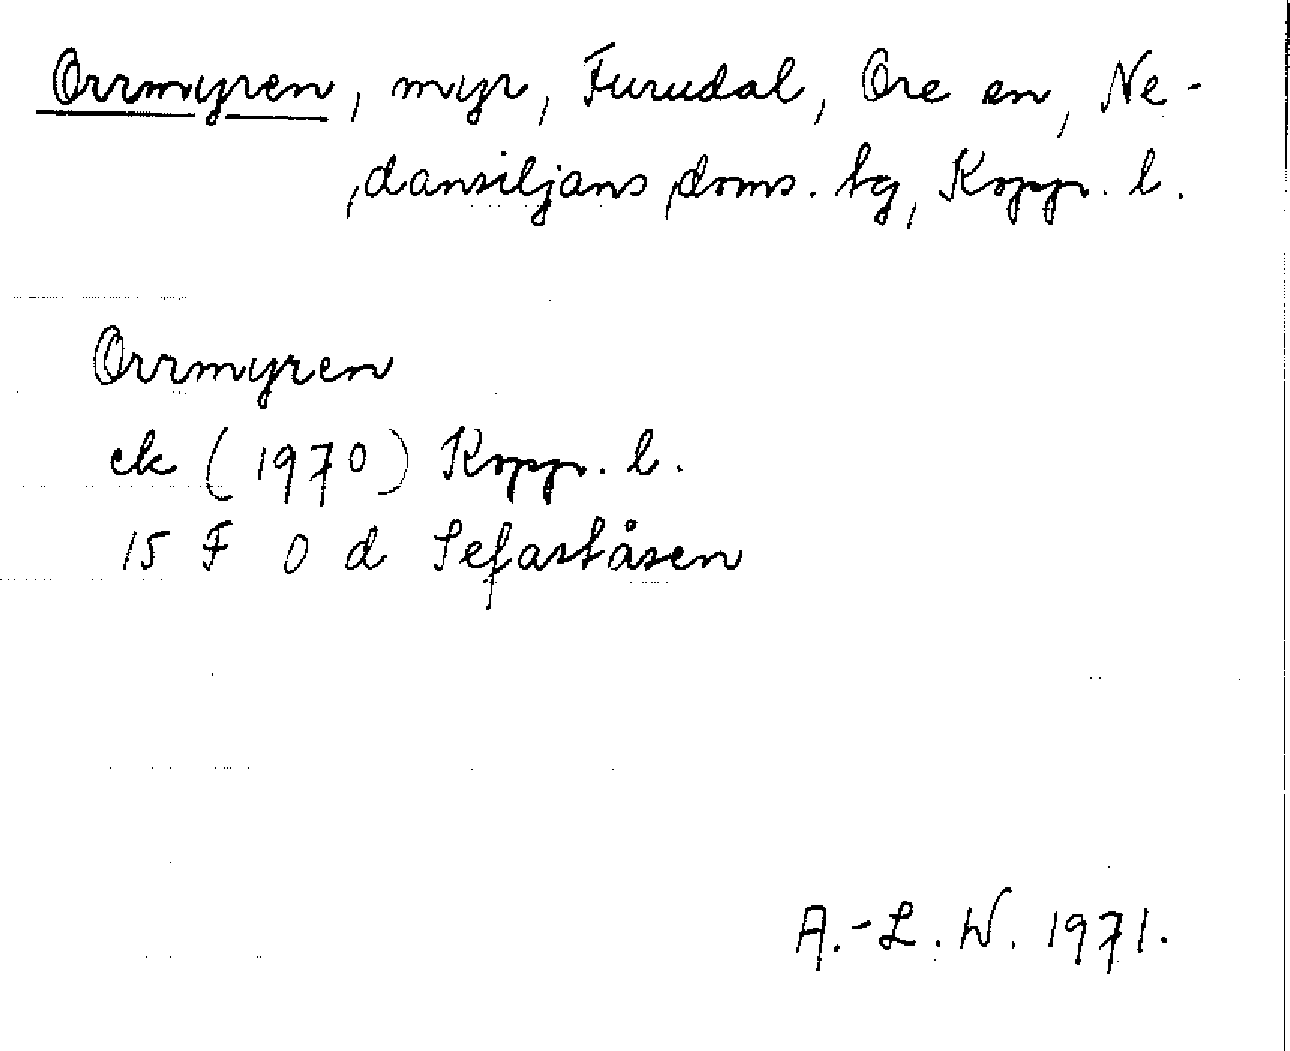 Orrmyren, myr, Furudal, Ore sn, Ne-
dansiljans doms. tg, Kopp. l.
Orrmyren
ek (1970) Kopp. l.
15 F 0 d Sefaståsen
A.-L. W. 1971.